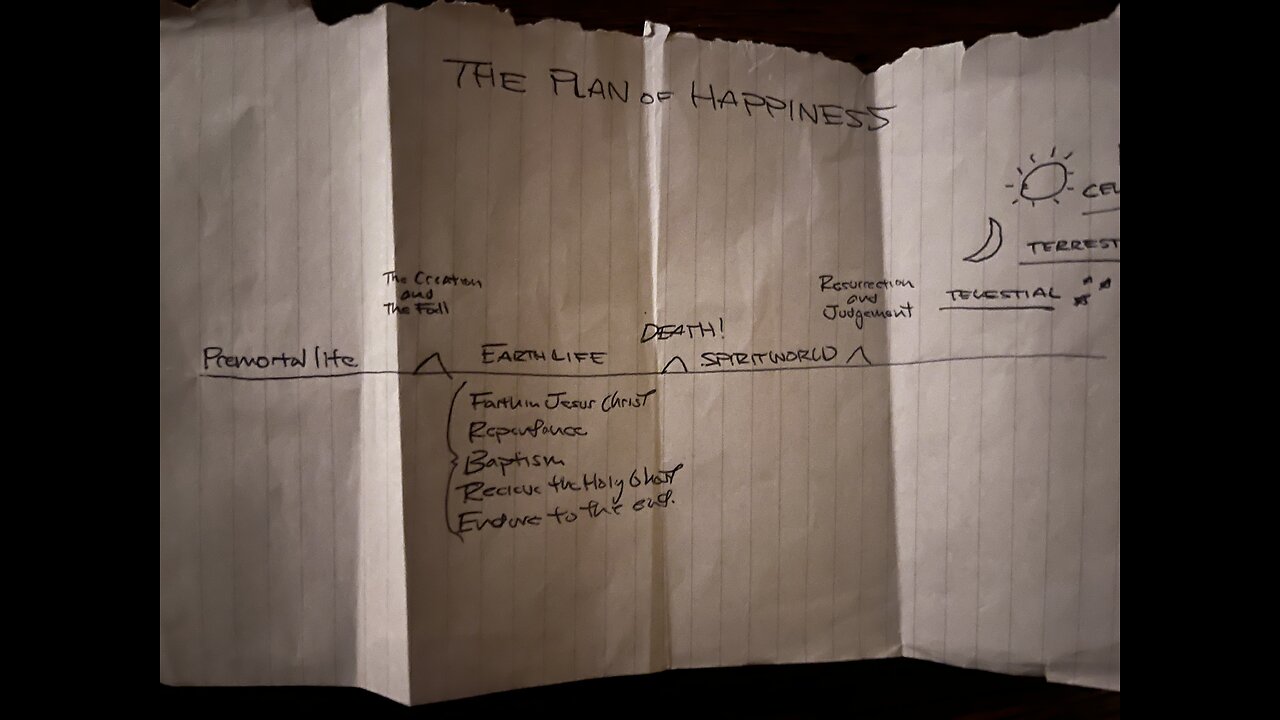 THE PLAN OF HAPPINESS
CEL
TERREST
TELESTIAL
The Creation
and
The Fall
Resurrection
and
Judgement
DEATH!
Premortal life
EARTH LIFE
SPIRIT WORLD
Faith in Jesus Christ
Repentance
Baptism
Recieve the Holy Ghost
Endure to the end.